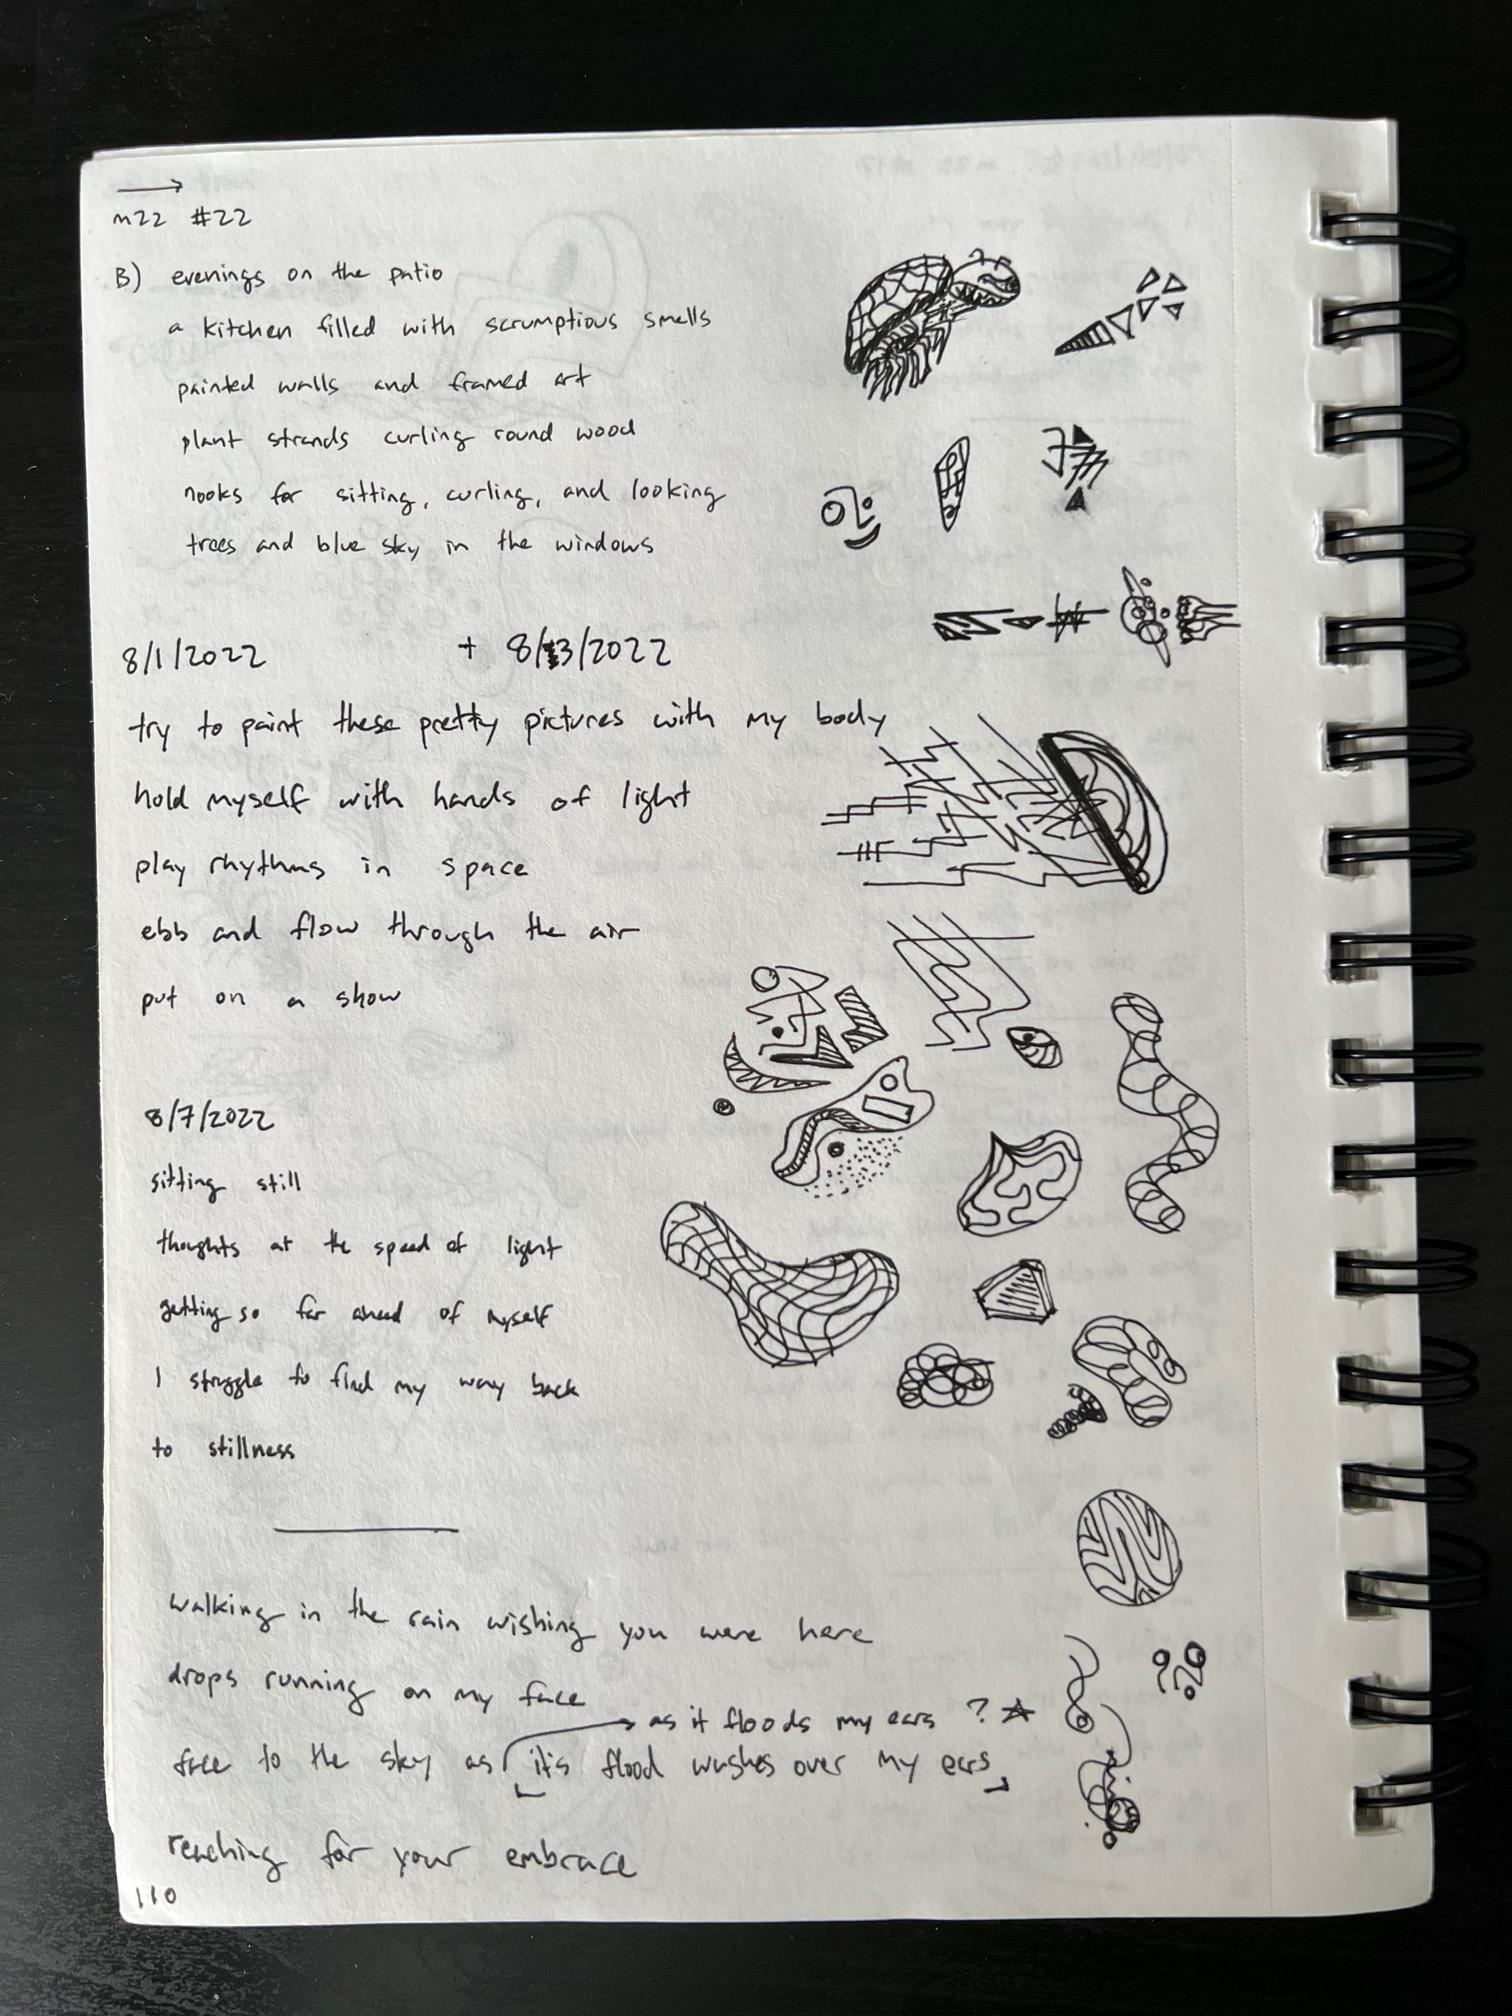 m22 #22
B) evenings on the patio
a kitchen filled with scrumptious smells
painted walls and framed art
plant strands curling round wood
nooks for sitting, curling, and looking
trees and blue sky in the windows
8/1/2022 + 8/3/2022
try to paint these pretty pictures with my body
hold myself with hands of light
play rhythms in space
ebb and flow through the air
put on a show
8/7/2022
sitting still
thoughts at the speed of light
getting so far ahead of myself
I struggle to find my way back
to stillness
walking in the rain wishing you were here
drops running on my face
as it floods my ears ?
face to the sky as [it's flood washes over my ears]
reaching for your embrace
110